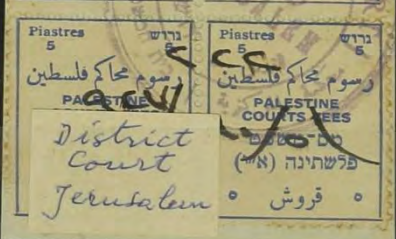 Piastres גרוש
5 5
رسوم محاكم فلسطين
PALESTINE
District
Court
Jerusalem
Piastres גרוש
5 5
رسوم محاكم فلسطين
PALESTINE
COURTS FEES
פלשתינה (א״י)
٥ قروش ٥